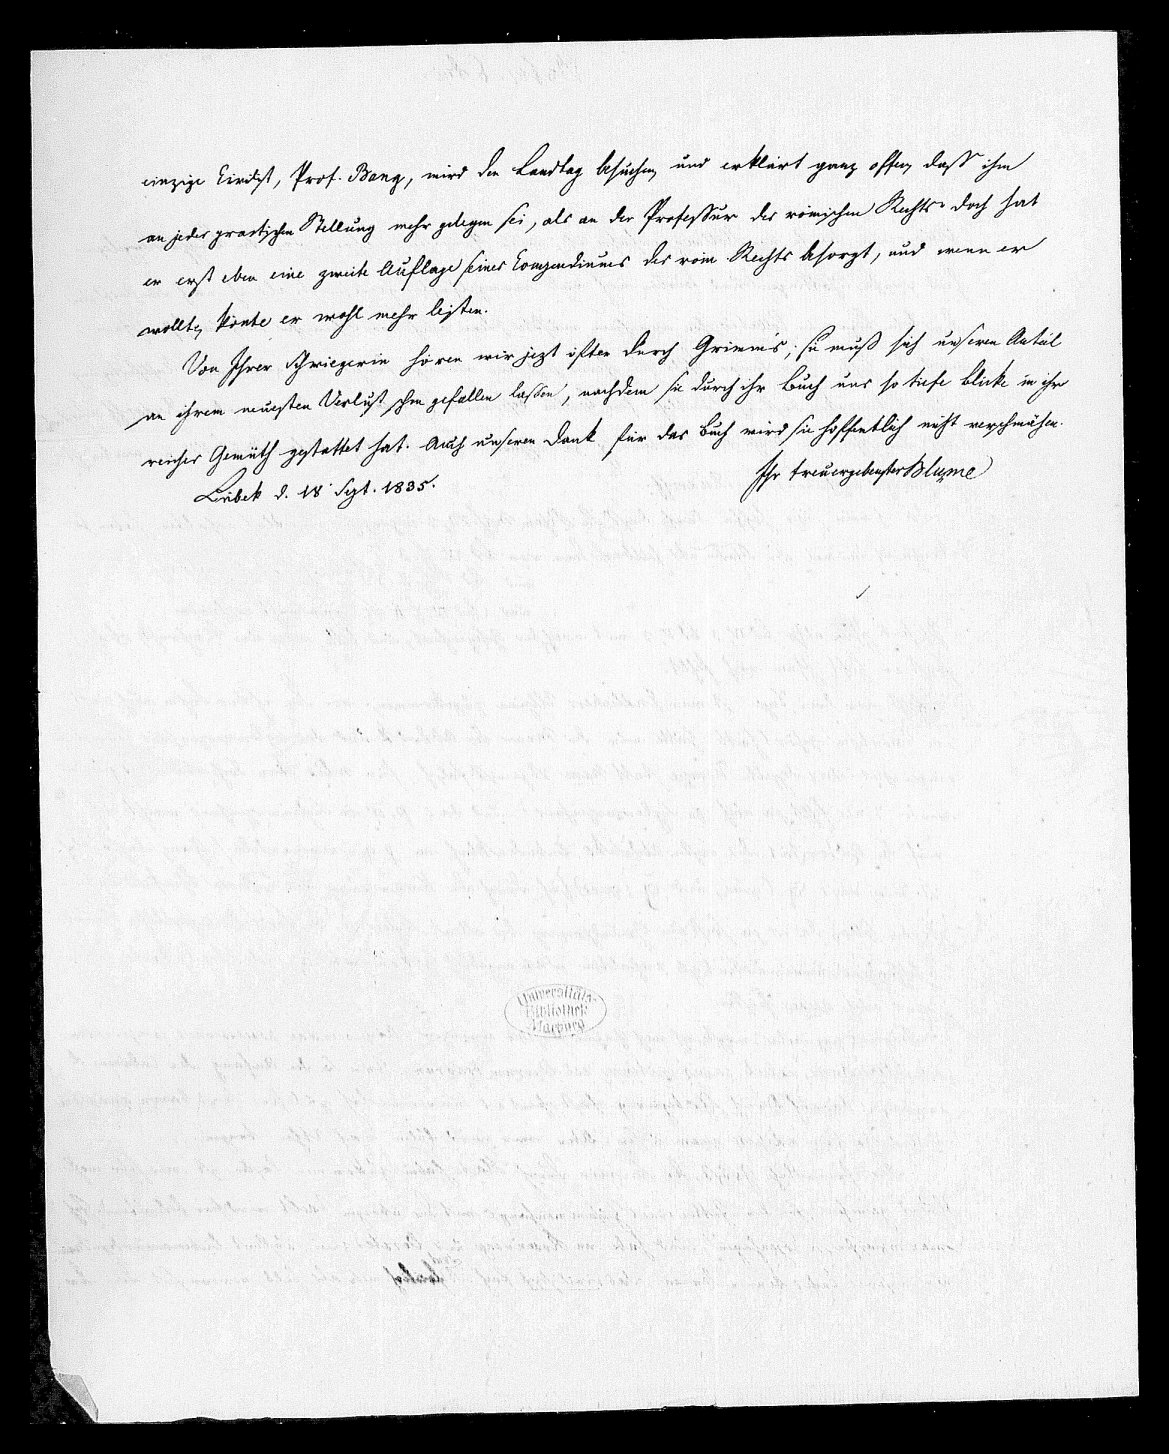 einzige Civilist, Prof. Bang, wird den Landtag besuchen, und erklärt ganz offen, dass ihm
an jeder practischen Stellung mehr gelegen sei, als an der Professur des römischen Rechts. Doch hat
er erst eben eine zweite Auflage seines Compendiums des röm Rechts besorgt, und wenn er
wollte, könte er wohl mehr leisten.
Von Ihrer Schwiegerin hören wir jezt öfter durch Grimm's; sie muß sich unseren Anteil
an ihrem neuesten Verlust schon gefallen lassen, nachdem sie durch ihr Buch uns so tiefe Blicke in ihr
reiches Gemüth gestattet hat. Auch unseren Dank für das Buch wird sie hoffentlich nicht verschmähen.
Ihr treuergebenster Blume
Lübek d. 18 Sept. 1835.
Universitäts-
Bibliothek
Marburg